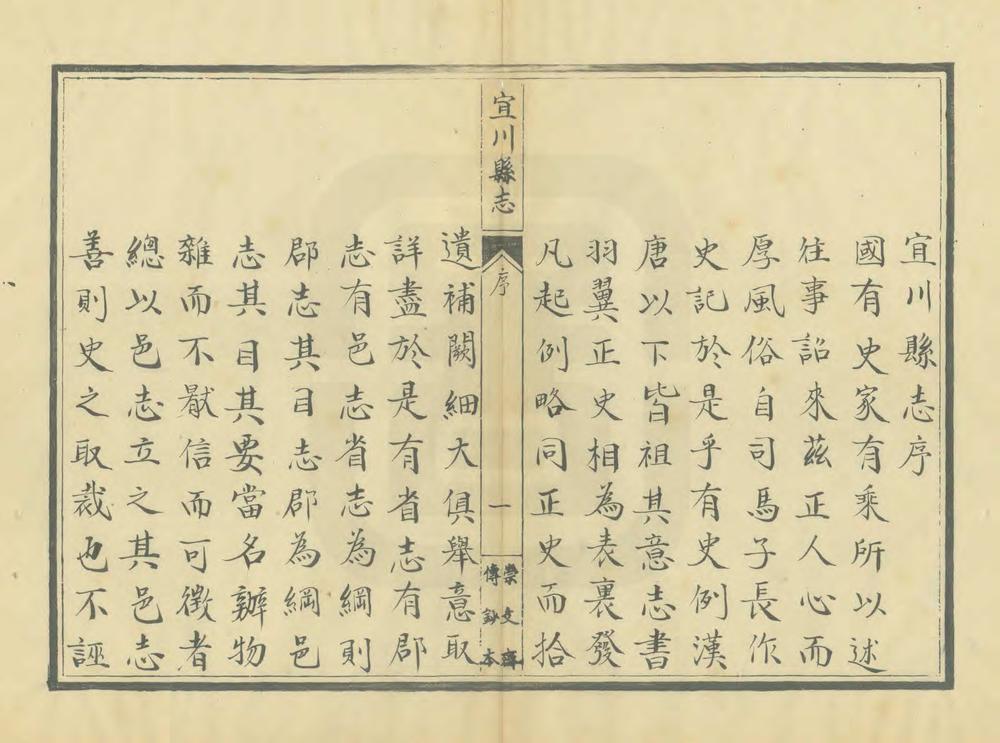 宜川縣志序
國有史家有乘所以述
往事詔來茲正人心而
厚風俗自司馬子長作
史記於是乎有史例漢
唐以下皆祖其意志書
羽翼正史相為表裏發
凡起例略同正史而拾
宜川縣志
序
一
崇文齋
傳鈔本
遺補闕細大俱舉意取
詳盡於是有省志有郡
志有邑志省志為綱則
郡志其目志郡為綱邑
志其目其要當名辦物
雜而不厭信而可徵者
總以邑志立之其邑志
善則史之取裁也不誣